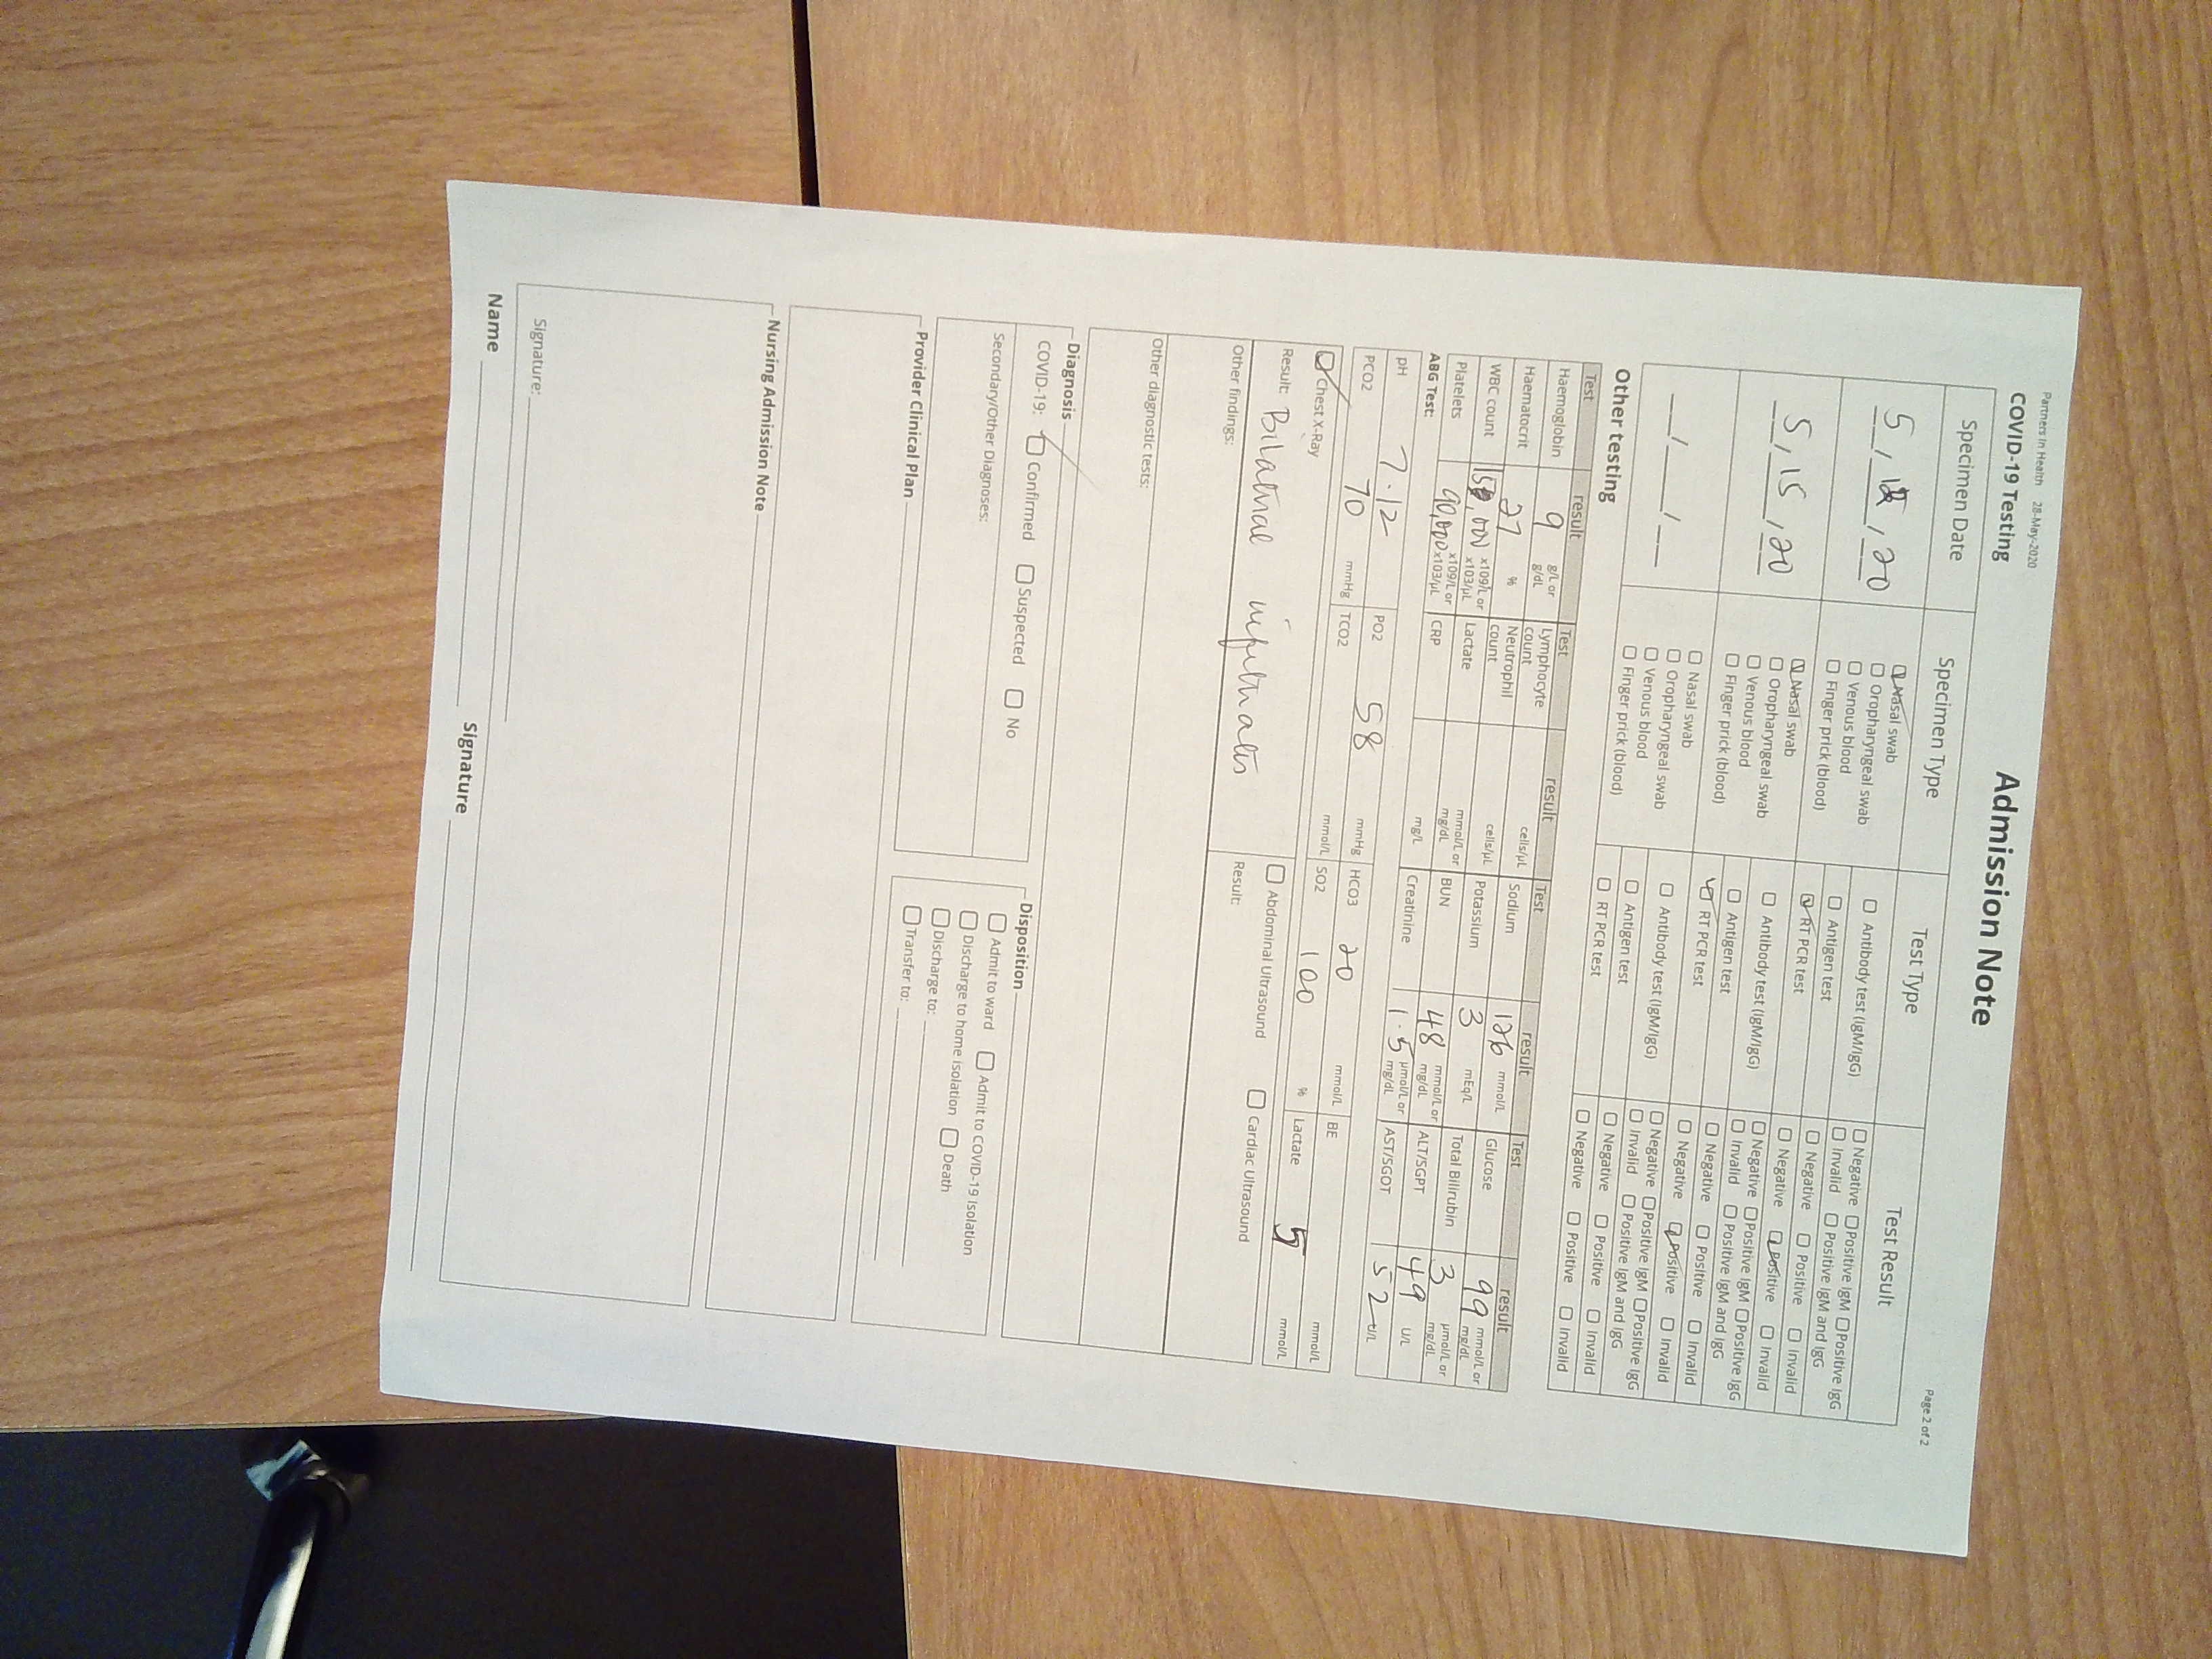 Partners In Health 28-May-2020
Admission Note
Page 2 of 2
COVID-19 Testing
Specimen Date Specimen Type Test Type Test Result
5 / / 20 ☑ Nasal swab ☐ Oropharyngeal swab ☐ Venous blood ☐ Finger prick (blood)
☐ Antibody test (IgM/IgG) ☐ Negative ☐ Positive IgM ☐ Positive IgG ☐ Invalid ☐ Positive IgM and IgG
☐ Antigen test ☐ Negative ☐ Positive ☐ Invalid
☑ RT PCR test ☐ Negative ☑ Positive ☐ Invalid
5 / 15 / 20 ☑ Nasal swab ☐ Oropharyngeal swab ☐ Venous blood ☐ Finger prick (blood)
☐ Antibody test (IgM/IgG) ☐ Negative ☐ Positive IgM ☐ Positive IgG ☐ Invalid ☐ Positive IgM and IgG
☐ Antigen test ☐ Negative ☐ Positive ☐ Invalid
☑ RT PCR test ☐ Negative ☑ Positive ☐ Invalid
__/___/__ ☐ Nasal swab ☐ Oropharyngeal swab ☐ Venous blood ☐ Finger prick (blood)
☐ Antibody test (IgM/IgG) ☐ Negative ☐ Positive IgM ☐ Positive IgG ☐ Invalid ☐ Positive IgM and IgG
☐ Antigen test ☐ Negative ☐ Positive ☐ Invalid
☐ RT PCR test ☐ Negative ☐ Positive ☐ Invalid
Other testing
Test result Test result Test result Test result
Haemoglobin 9 g/L or g/dL Lymphocyte count cells/µL Sodium 126 mmol/L Glucose 99 mmol/L or mg/dL
Haematocrit 27 % Neutrophil count cells/µL Potassium 3 mEq/L Total Bilirubin 3 µmol/L or mg/dL
WBC count ,000 x109/L or x103/µL Lactate mmol/L or mg/dL BUN 48 mmol/L or mg/dL ALT/SGPT 49 U/L
Platelets 90,000 x109/L or x103/µL CRP mg/L Creatinine 1.5 µmol/L or mg/dL AST/SGOT 52 U/L
ABG Test:
pH 7.12 PO2 58 mmHg HCO3 20 mmol/L BE mmol/L
PCO2 70 mmHg TCO2 mmol/L SO2 100 % Lactate 5 mmol/L
☑ Chest X-Ray ☐ Abdominal Ultrasound ☐ Cardiac Ultrasound
Result: Bilateral infiltrates Result:
Other findings:
Other diagnostic tests:
Diagnosis
COVID-19: ☑ Confirmed ☐ Suspected ☐ No
Secondary/Other Diagnoses:
Disposition
☐ Admit to ward ☐ Admit to COVID-19 Isolation
☐ Discharge to home isolation ☐ Death
☐ Discharge to:
☐ Transfer to:
Provider Clinical Plan
Nursing Admission Note
Signature:
Name Signature